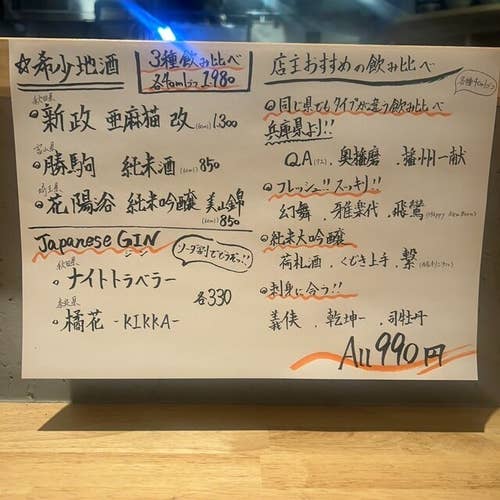 ☆希少地酒
3種飲み比べ
各40mlずつ 1,980
秋田県
・新政 亜麻猫 改 (60ml) 1,300
富山県
・勝駒 純米酒 (60ml) 850
埼玉県
・花陽浴 純米吟醸 美山錦
(60ml) 850
Japanese GIN
ソーダ割でどうぞっ!!
秋田県
・ナイトトラベラー
各330
奈良県
・橘花 -KIKKA-
店主おすすめの飲み比べ
各種40mlずつ
同じ県でもタイプが違う飲み比べ
兵庫県より!!
QA、奥播磨、播州一献
フレッシュ!! スッキリ!!
幻舞、雅楽代、飛鸞
純米大吟醸
荷札酒、くどき上手、繋
刺身に合う!!
義侠、乾坤一、司牡丹
All 990円